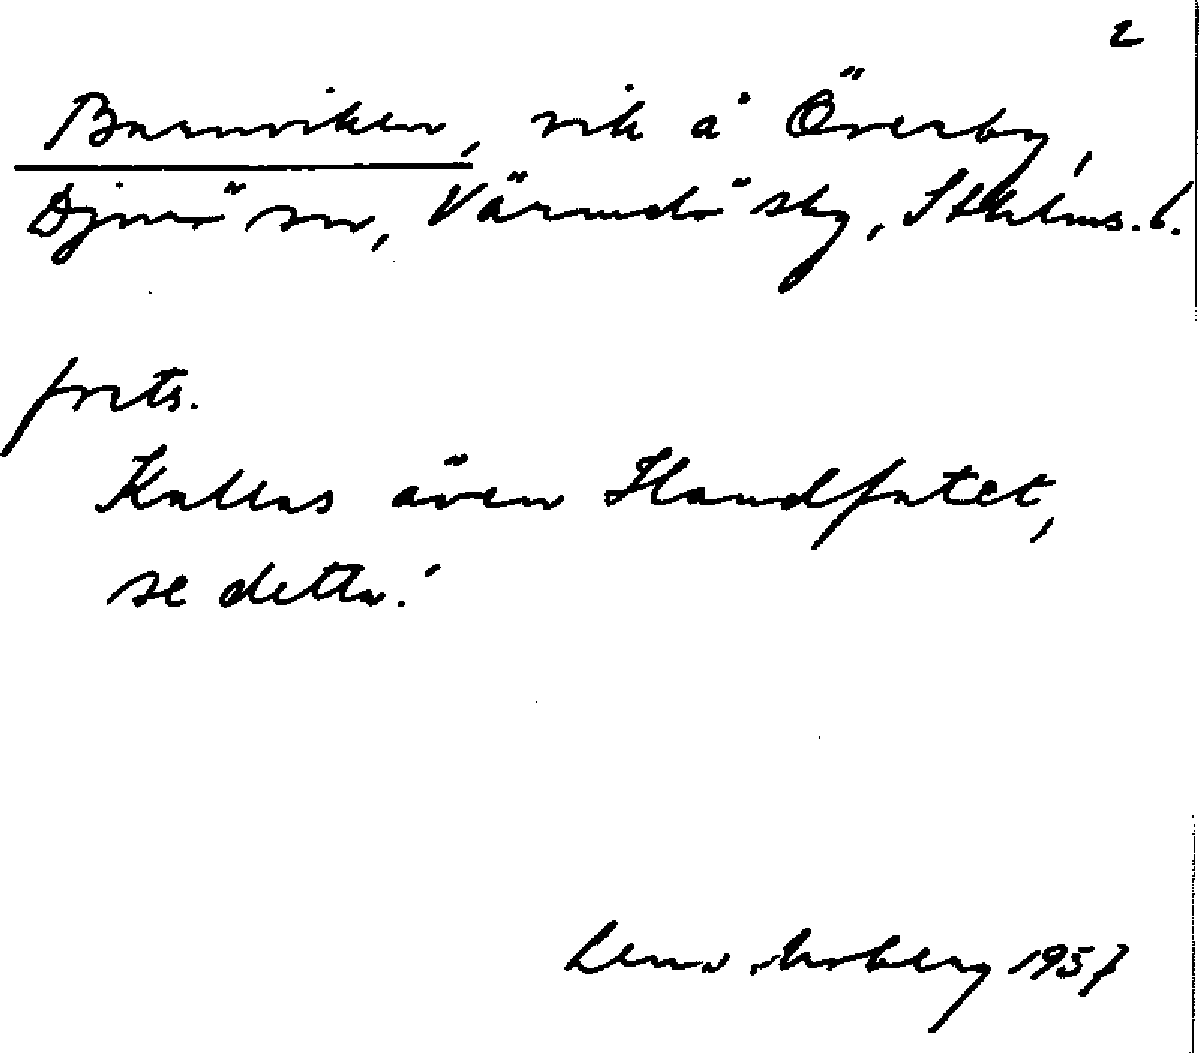 2
Barnviken, vik å Överby,
Djurö sn, Värmdö skg, Sthlms. l.
forts.
Kallas även Handfatet,
se detta!
Lena Moberg 1957